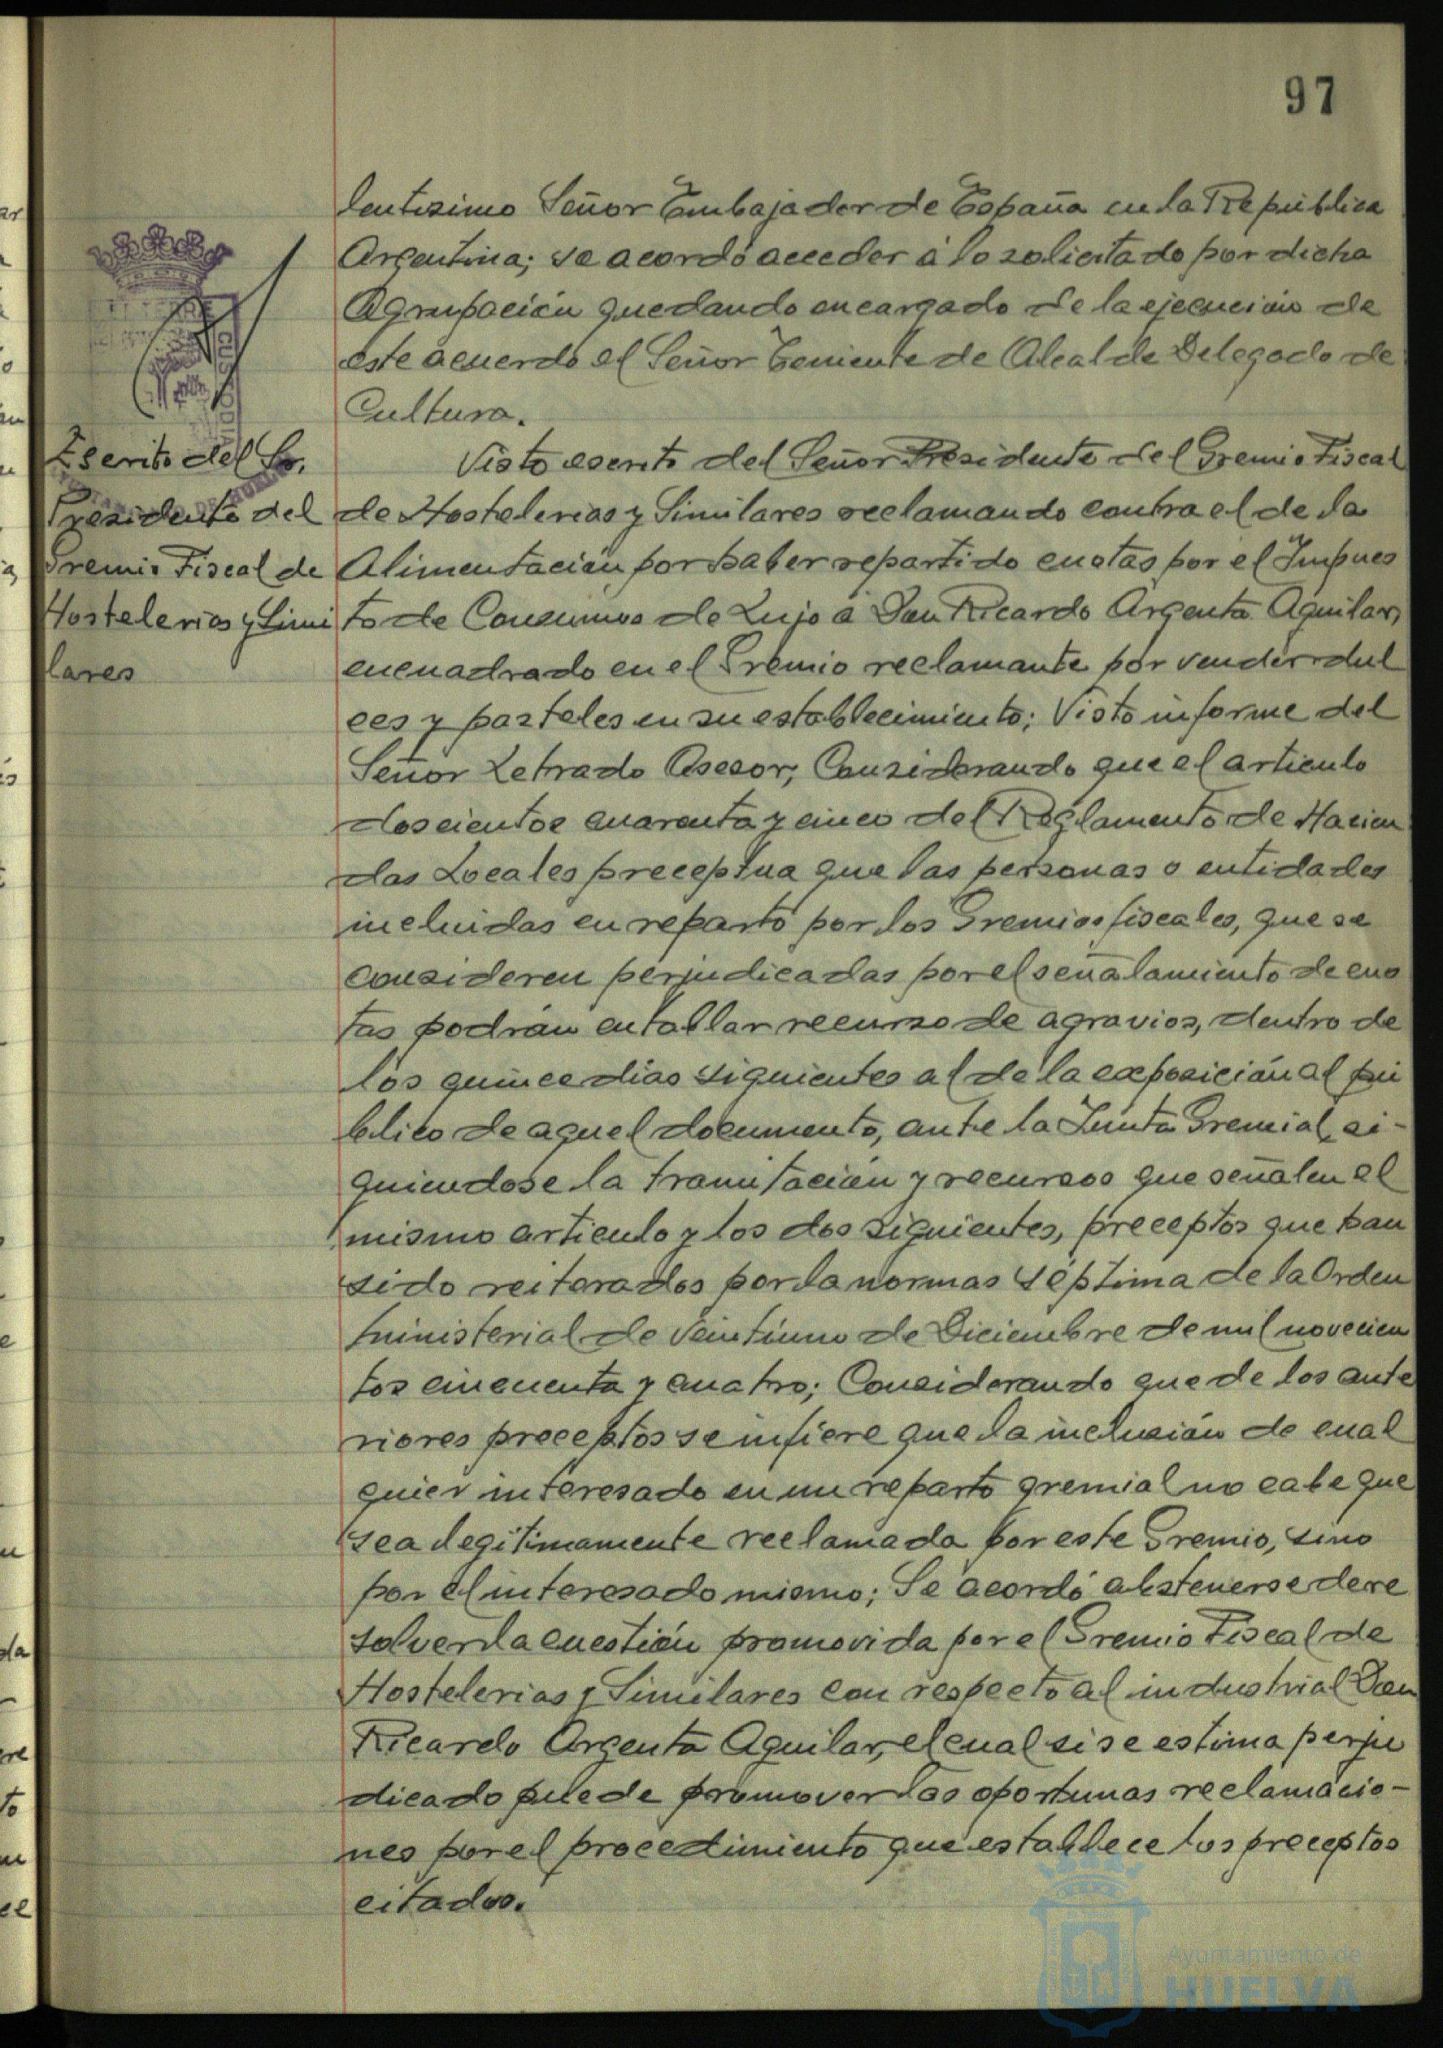 97
lentisimo Señor Embajador de España en la República
Argentina; se acordó acceder á lo solicitado por dicha
Agrupación quedando encargado de la ejecución de
este acuerdo el Señor Teniente de Alcalde Delegado de
Cultura.
Escrito del Sr.
Presidente del
Gremio Fiscal de
Hostelerias y Simi
lares
Visto escrito del Señor Presidente del Gremio Fiscal
de Hostelerias y Similares reclamando contra el de la
Alimentación por haber repartido cuotas por el Impues
to de Consumos de Lujo á Don Ricardo Argenta Aguilar,
encuadrado en el Gremio reclamante por vender dul
ces y pasteles en su establecimiento; Visto informe del
Señor Letrado Asesor; Considerando que el articulo
doscientos cuarenta y cinco del Reglamento de Hacien
das Locales preceptua que las personas o entidades
incluidas en reparto por los Gremios fiscales, que se
consideren perjudicadas por el señalamiento de cuo
tas podrán entablar recurso de agravios, dentro de
los quince dias siguientes al de la exposición al pú
blico de aquel documento, ante la Junta Gremial, si-
guiendose la tramitación y recursos que señalen el
mismo articulo y los dos siguientes, preceptos que han
sido reiterados por la normas séptima de la Orden
ministerial de veintiuno de Diciembre de mil novecien
tos cincuenta y cuatro; Considerando que de los ante
riores preceptos se infiere que la inclusión de cual
quier interesado en un reparto gremial no cabe que
sea legitimamente reclamada por este Gremio, sino
por el interesado mismo; Se acordó abstenerse de re
solver la cuestión promovida por el Gremio Fiscal de
Hostelerias y Similares con respecto al industrial Don
Ricardo Argenta Aguilar, el cual si se estima perju
dicado puede promover las oportunas reclamacio-
nes por el procedimiento que establece los preceptos
citados.
Ayuntamiento de
HUELVA